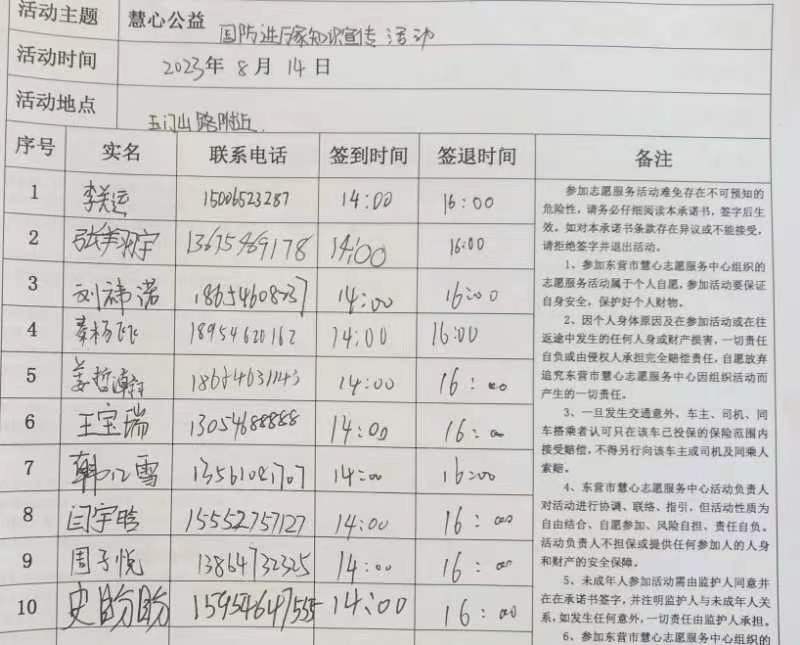 活动主题 慧心公益 国防进万家知识宣传活动
活动时间 2023年 8月 14日
活动地点 玉门山路附近
序号 实名 联系电话 签到时间 签退时间 备注
1 李关运 15006523287 14:00 16:00
2 13675469178 14:00 16:00
3 刘祎诺 14:00 16:00
4 秦杨 18954620162 14:00 16:00
5 姜哲瀚 14:00 16:00
6 王宝瑞 13054688888 14:00 16:00
7 韩江雪 14:00 16:00
8 闫宇晗 15552757127 14:00 16:00
9 周子悦 13864732325 14:00 16:00
10 史盼盼 15954647555 14:00 16:00
参加志愿服务活动难免存在不可预知的
危险性,请务必仔细阅读本承诺书,签字后生
效。如对本承诺书条款存在异议或不能接受,
请拒绝签字并退出活动。
1、参加东营市慧心志愿服务中心组织的
志愿服务活动属于个人自愿,参加活动要保证
自身安全,保护好个人财物。
2、因个人身体原因及在参加活动或在往
返途中发生的任何人身或财产损害,一切责任
自负或由侵权人承担完全赔偿责任,自愿放弃
追究东营市慧心志愿服务中心因组织活动而
产生的一切责任。
3、一旦发生交通意外,车主、司机、同
车搭乘者认可只在该车已投保的保险范围内
接受赔偿,不得另行向该车主或司机及同乘人
索赔。
4、东营市慧心志愿服务中心活动负责人
对活动进行协调、联络、指引,但活动性质为
自由结合、自愿参加、风险自担、责任自负。
活动负责人不担保或提供任何参加人的人身
和财产的安全保障。
5、未成年人参加活动需由监护人同意并
在在承诺书签字,并注明监护人与未成年人关
系,如发生任何意外,一切责任由监护人承担。
6、参加东营市慧心志愿服务中心组织的